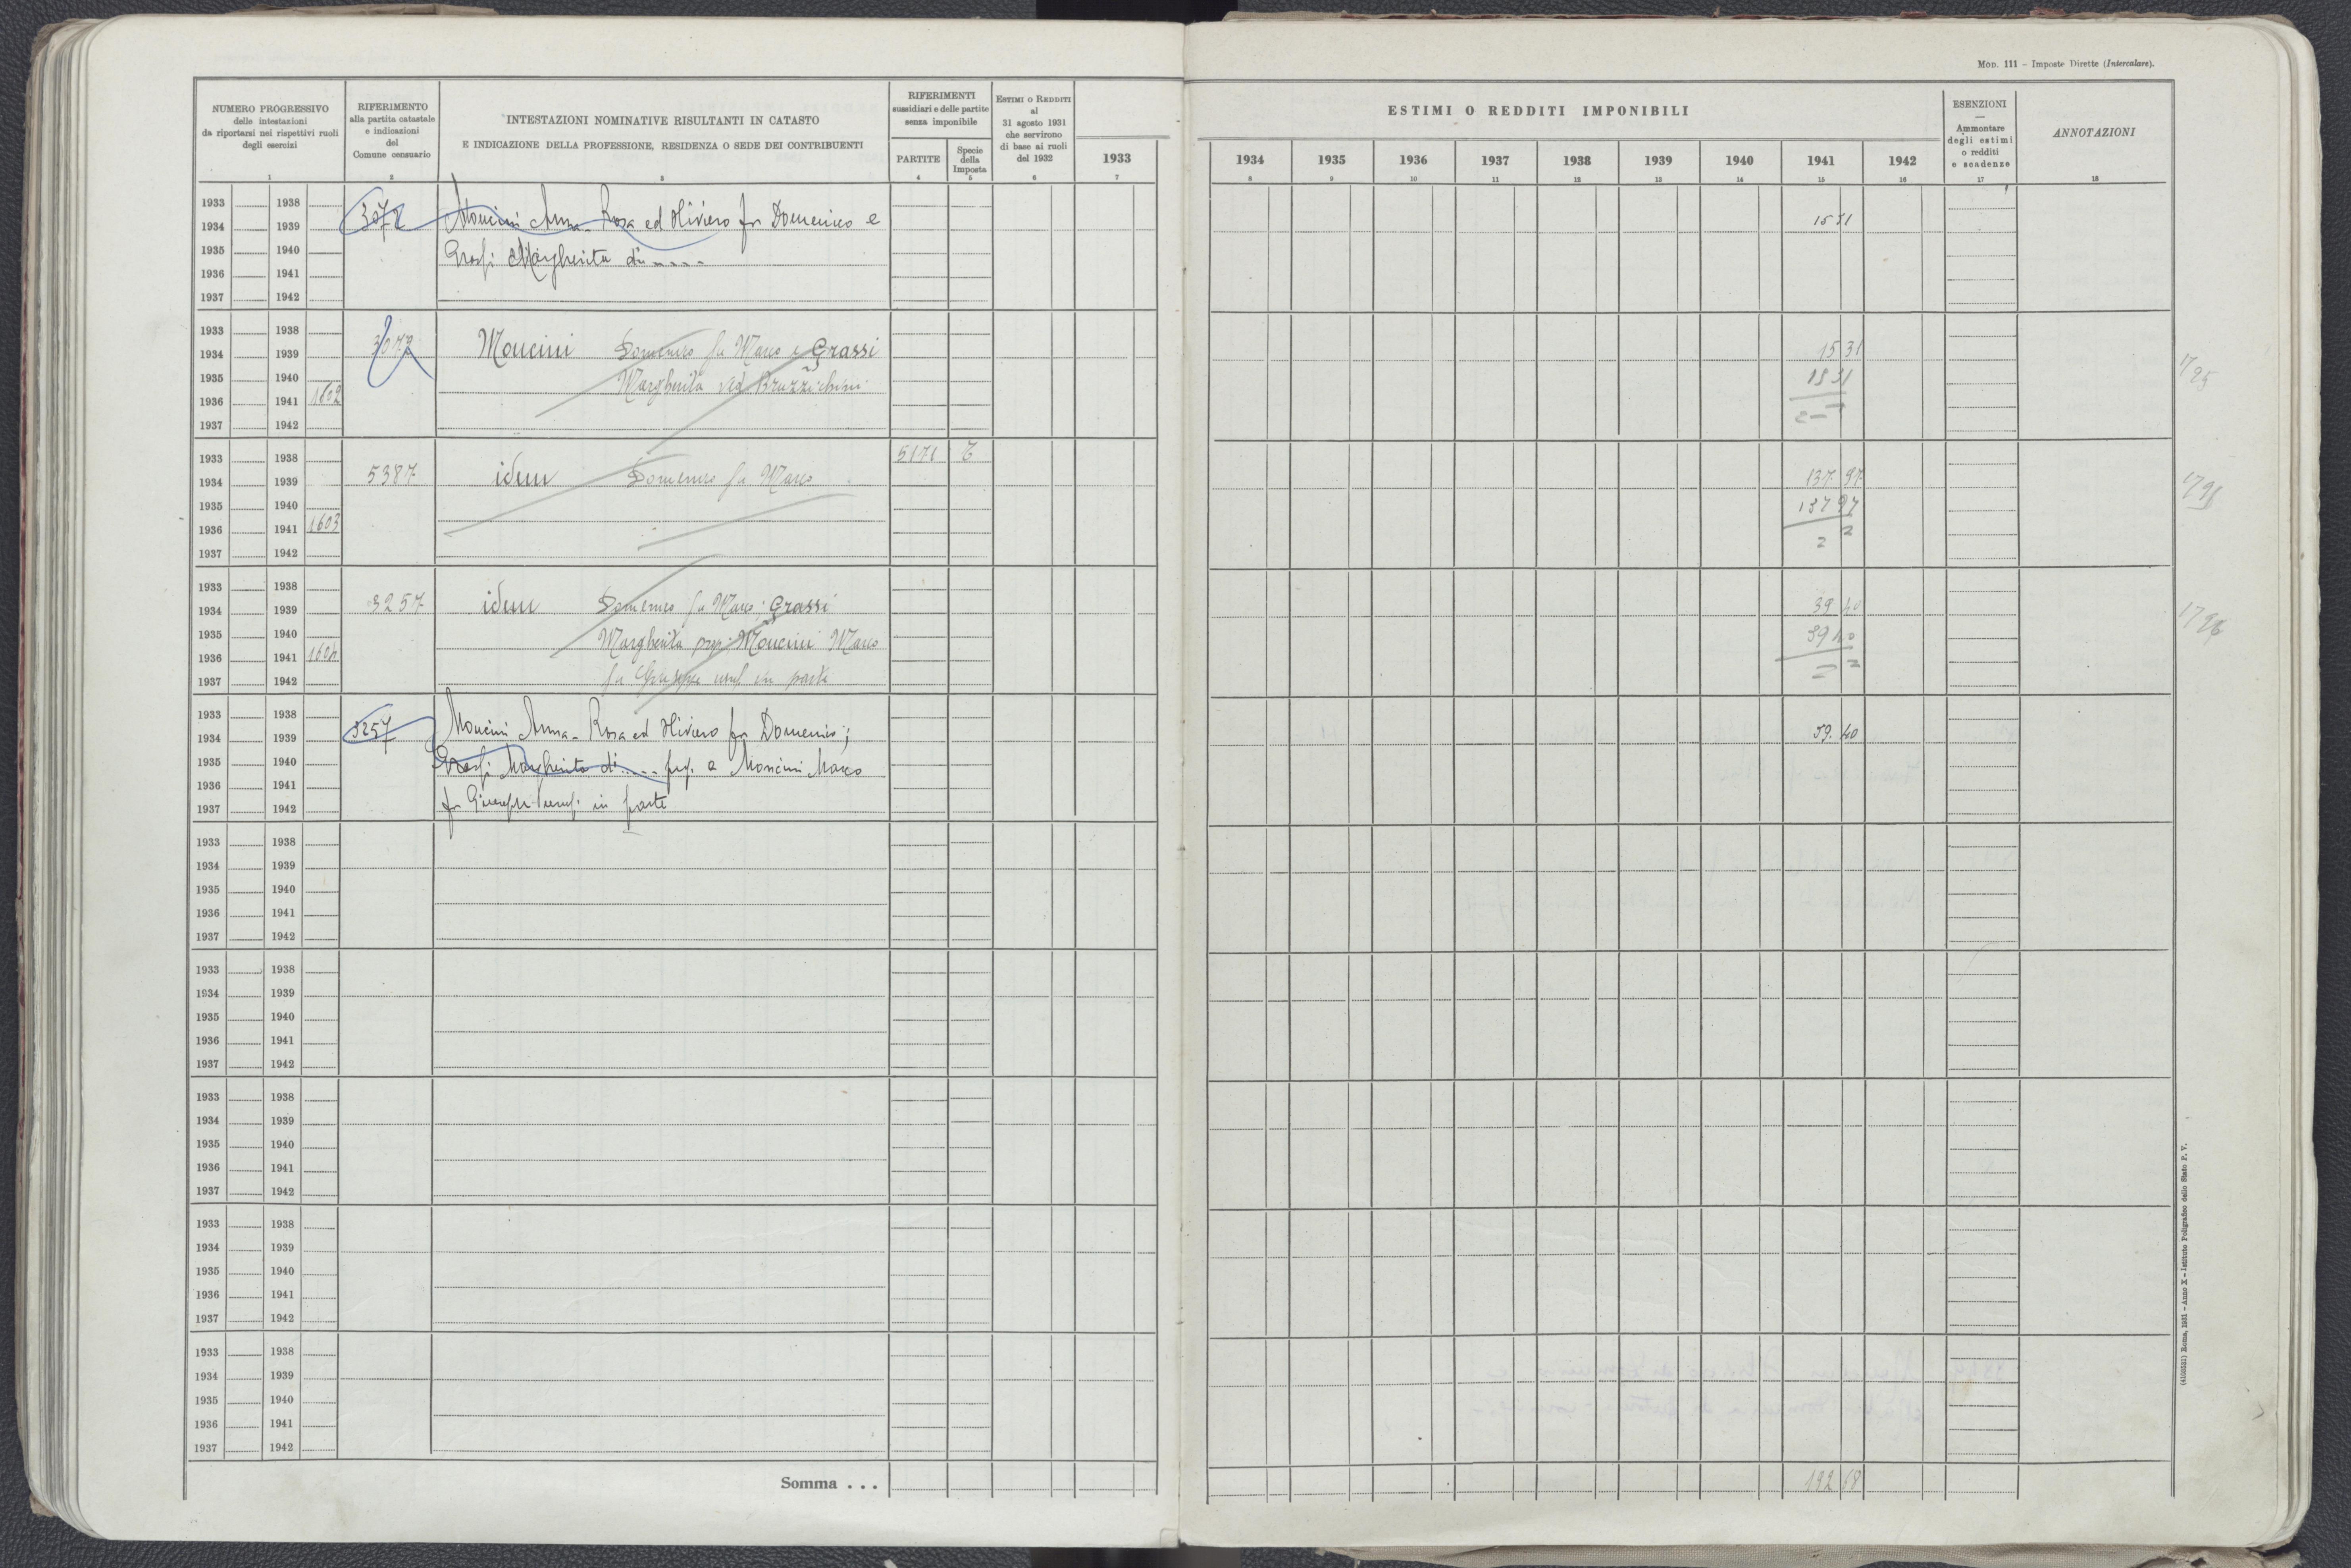 Mod. 111 – Imposte Dirette (Intercalare).
NUMERO PROGRESSIVO
delle intestazioni
da riportarsi nei rispettivi ruoli
degli esercizi
1
RIFERIMENTO
alla partita catastale
e indicazioni
del
Comune censuario
2
INTESTAZIONI NOMINATIVE RISULTANTI IN CATASTO
E INDICAZIONE DELLA PROFESSIONE, RESIDENZA O SEDE DEI CONTRIBUENTI
3
RIFERIMENTI
sussidiari e delle partite
senza imponibile
PARTITE
4
Specie
della
Imposta
5
Estimi o Redditi
al
31 agosto 1931
che servirono
di base ai ruoli
del 1932
6
1933
7
ESTIMI O REDDITI IMPONIBILI
1934 1935 1936 1937 1938 1939 1940 1941 1942
8 9 10 11 12 13 14 15 16
ESENZIONI
—
Ammontare
degli estimi
o redditi
e scadenze
17
ANNOTAZIONI
18
1933 1938
3072 Moncini Anna - Rosa ed Oliviero fu Domenico e 15 31
1934 1939
1935 1940 Grassi Margherita di ....
1936 1941
1937 1942
1933 1938
1934 1939 3072 Moncini Domenico fu Marco e Grassi 15 31
1935 1940 Margherita ved Bruzzichini 15 31
1936 1941 1602
1937 1942
1933 1938 5171
1934 1939 5387 idem Domenico fu Marco 137 97
1935 1940 137 97
1936 1941 1603
1937 1942 2 2
1933 1938
1934 1939 3257 idem Domenico fu Marco; Grassi 39 40
1935 1940 Margherita prop Moncini Marco 39 40
1936 1941 1604
1937 1942 fu Giuseppe usuf in parte
1933 1938
1934 1939 3257 Moncini Anna - Rosa ed Oliviero fu Domenico; 39. 40
1935 1940 Grassi Margherita di .... prop. a Moncini Marco
1936 1941
1937 1942 fu Giuseppe usuf. in parte
1933 1938
1934 1939
1935 1940
1936 1941
1937 1942
1933 1938
1934 1939
1935 1940
1936 1941
1937 1942
1933 1938
1934 1939
1935 1940
1936 1941
1937 1942
1933 1938
1934 1939
1935 1940
1936 1941
1937 1942
1933 1938
1934 1939
1935 1940
1936 1941
1937 1942
Somma . . . 192 68
(4103531) Roma, 1931 – Anno X – Istituto Poligrafico dello Stato P. V.